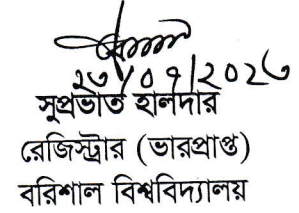 ২৩/০৭/২০২৩
সুপ্রভাত হালদার
রেজিস্ট্রার (ভারপ্রাপ্ত)
বরিশাল বিশ্ববিদ্যালয়